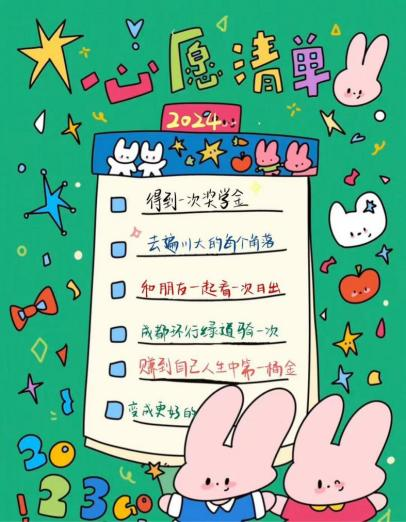 心愿清单
2024...
得到一次奖学金
去遍川大的每个角落
和朋友一起看一次日出
成都环行绿道骑一次
赚到自己人生中第一桶金
变成更好的
2023 GO